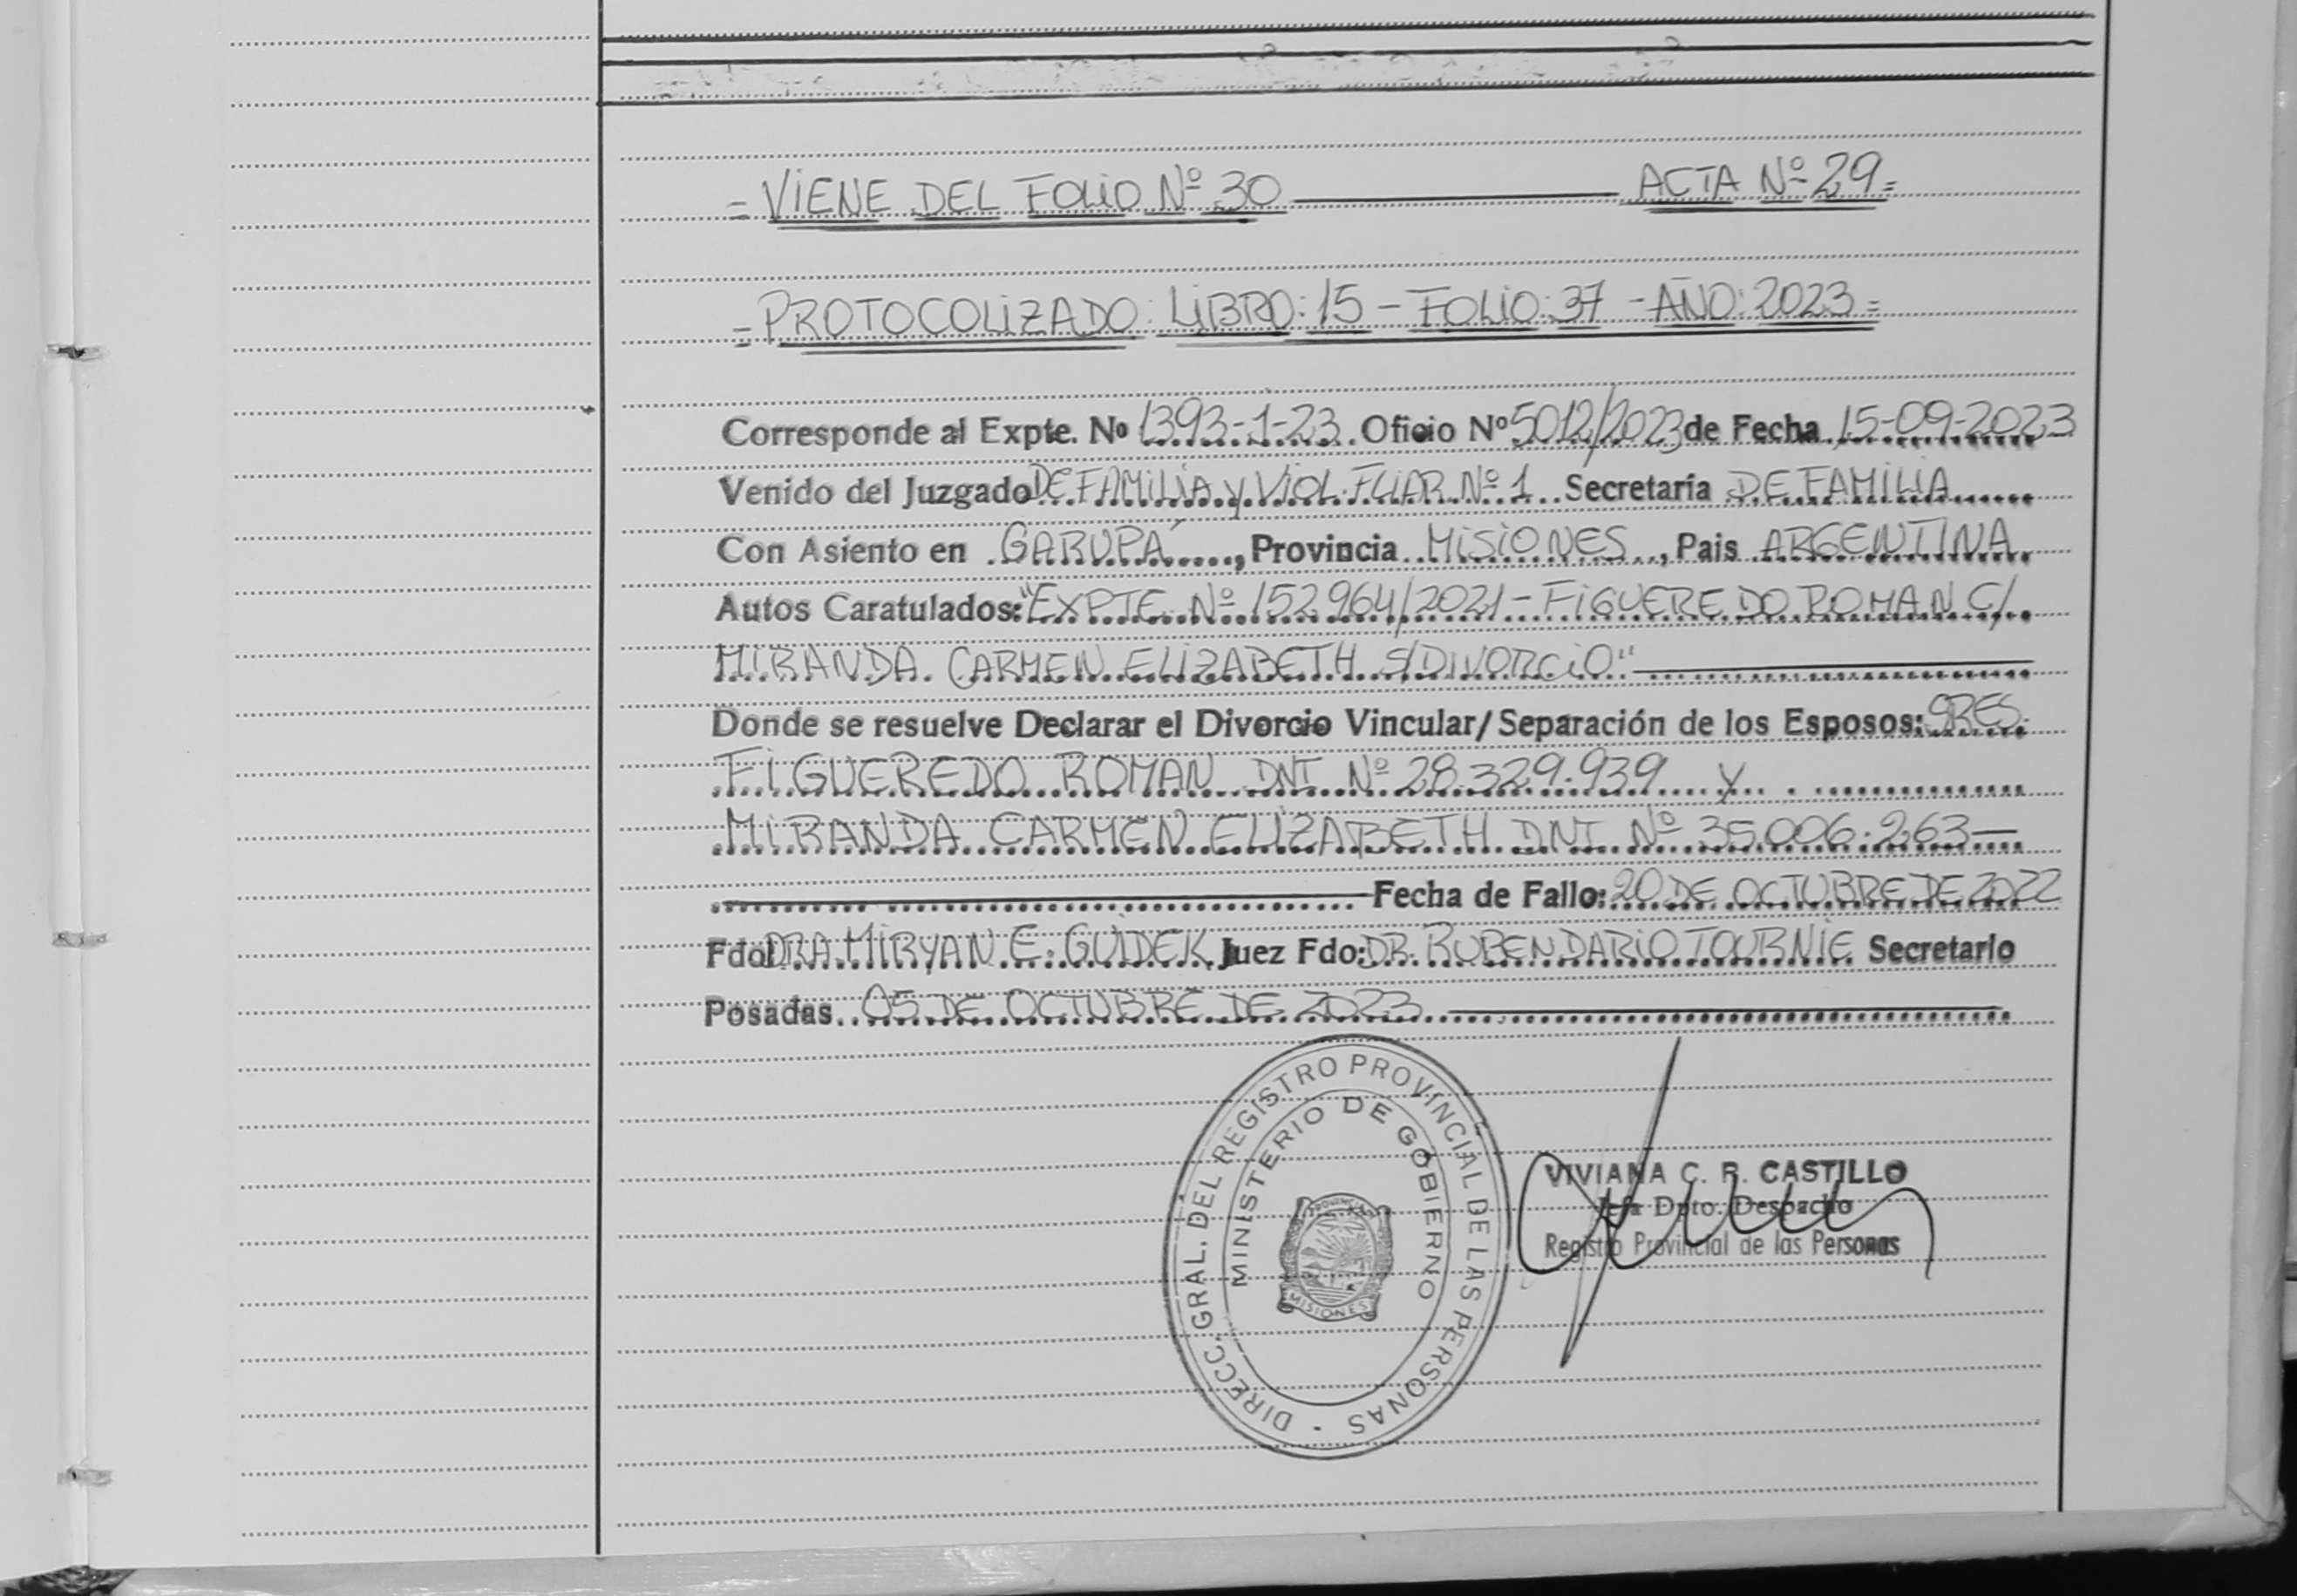 = VIENE DEL FOLIO Nº 30 ACTA Nº 29 =
= PROTOCOLIZADO: LIBRO: 15 - FOLIO: 37 - AÑO: 2023 =
Corresponde al Expte. Nº 1393-1-23 Oficio Nº 5012/2023 de Fecha 15-09-2023
Venido del Juzgado DE FAMILIA Y VIOL. FLIAR. Nº 1 Secretaría DE FAMILIA
Con Asiento en GARUPÁ, Provincia MISIONES, Pais ARGENTINA
Autos Caratulados: "EXPTE. Nº 152964/2021 - FIGUEREDO ROMAN C/
MIRANDA CARMEN ELIZABETH S/DIVORCIO"
Donde se resuelve Declarar el Divorcio Vincular/Separación de los Esposos: SRES.
FIGUEREDO ROMAN DNI Nº 28.329.939 Y
MIRANDA CARMEN ELIZABETH DNI Nº 35.006.263—
Fecha de Fallo: 20 DE OCTUBRE DE 2022
Fdo: DRA. MIRYAN E. GUIDEK Juez Fdo: DR. RUBEN DARIO TOURNIE Secretario
Posadas 05 DE OCTUBRE DE 2023
DIRECC. GRAL. DEL REGISTRO PROVINCIAL DE LAS PERSONAS
MINISTERIO DE GOBIERNO
PROVINCIA
MISIONES
VIVIANA C. R. CASTILLO
Jefa Dpto. Despacho
Registro Provincial de las Personas